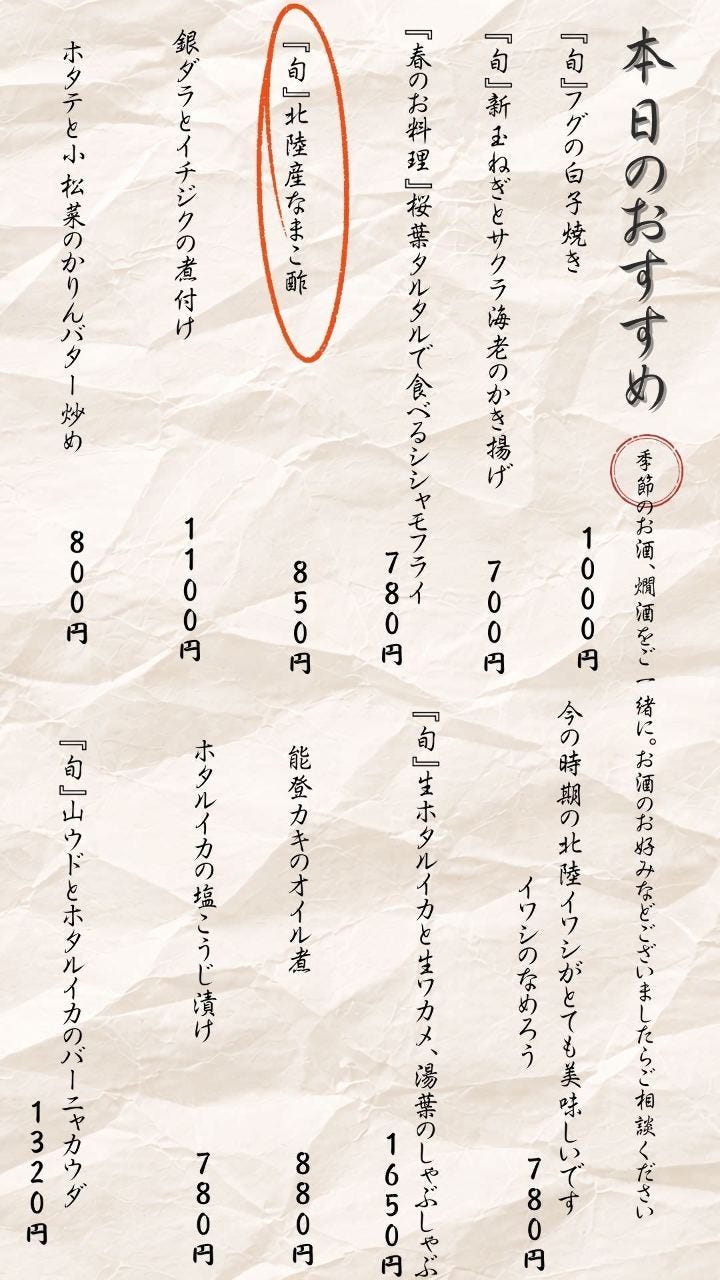 本日のおすすめ
季節のお酒、燗酒をご一緒に。お酒のお好みなどございましたらご相談ください
『旬』フグの白子焼き
1000円
『旬』新玉ねぎとサクラ海老のかき揚げ
700円
『春のお料理』桜葉タルタルで食べるシシャモフライ
780円
『旬』北陸産なまこ酢
850円
銀ダラとイチジクの煮付け
1100円
ホタテと小松菜のかりんバター炒め
800円
今の時期の北陸イワシがとても美味しいです
イワシのなめろう
780円
『旬』生ホタルイカと生ワカメ、湯葉のしゃぶしゃぶ
1650円
能登カキのオイル煮
880円
ホタルイカの塩こうじ漬け
780円
『旬』山ウドとホタルイカのバーニャカウダ
1320円